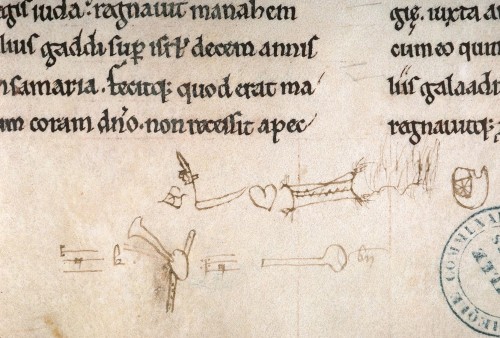 egis iuda. regnauit manahem
lius gaddi sup̄ isrł decem annis
nsamaria. fecitq; quod erat ma
um coram dn̄o. non recessit a pec
gię. iuxta a
cum eo quin
liis galaad
regnauitq;
QUE COMMUNA